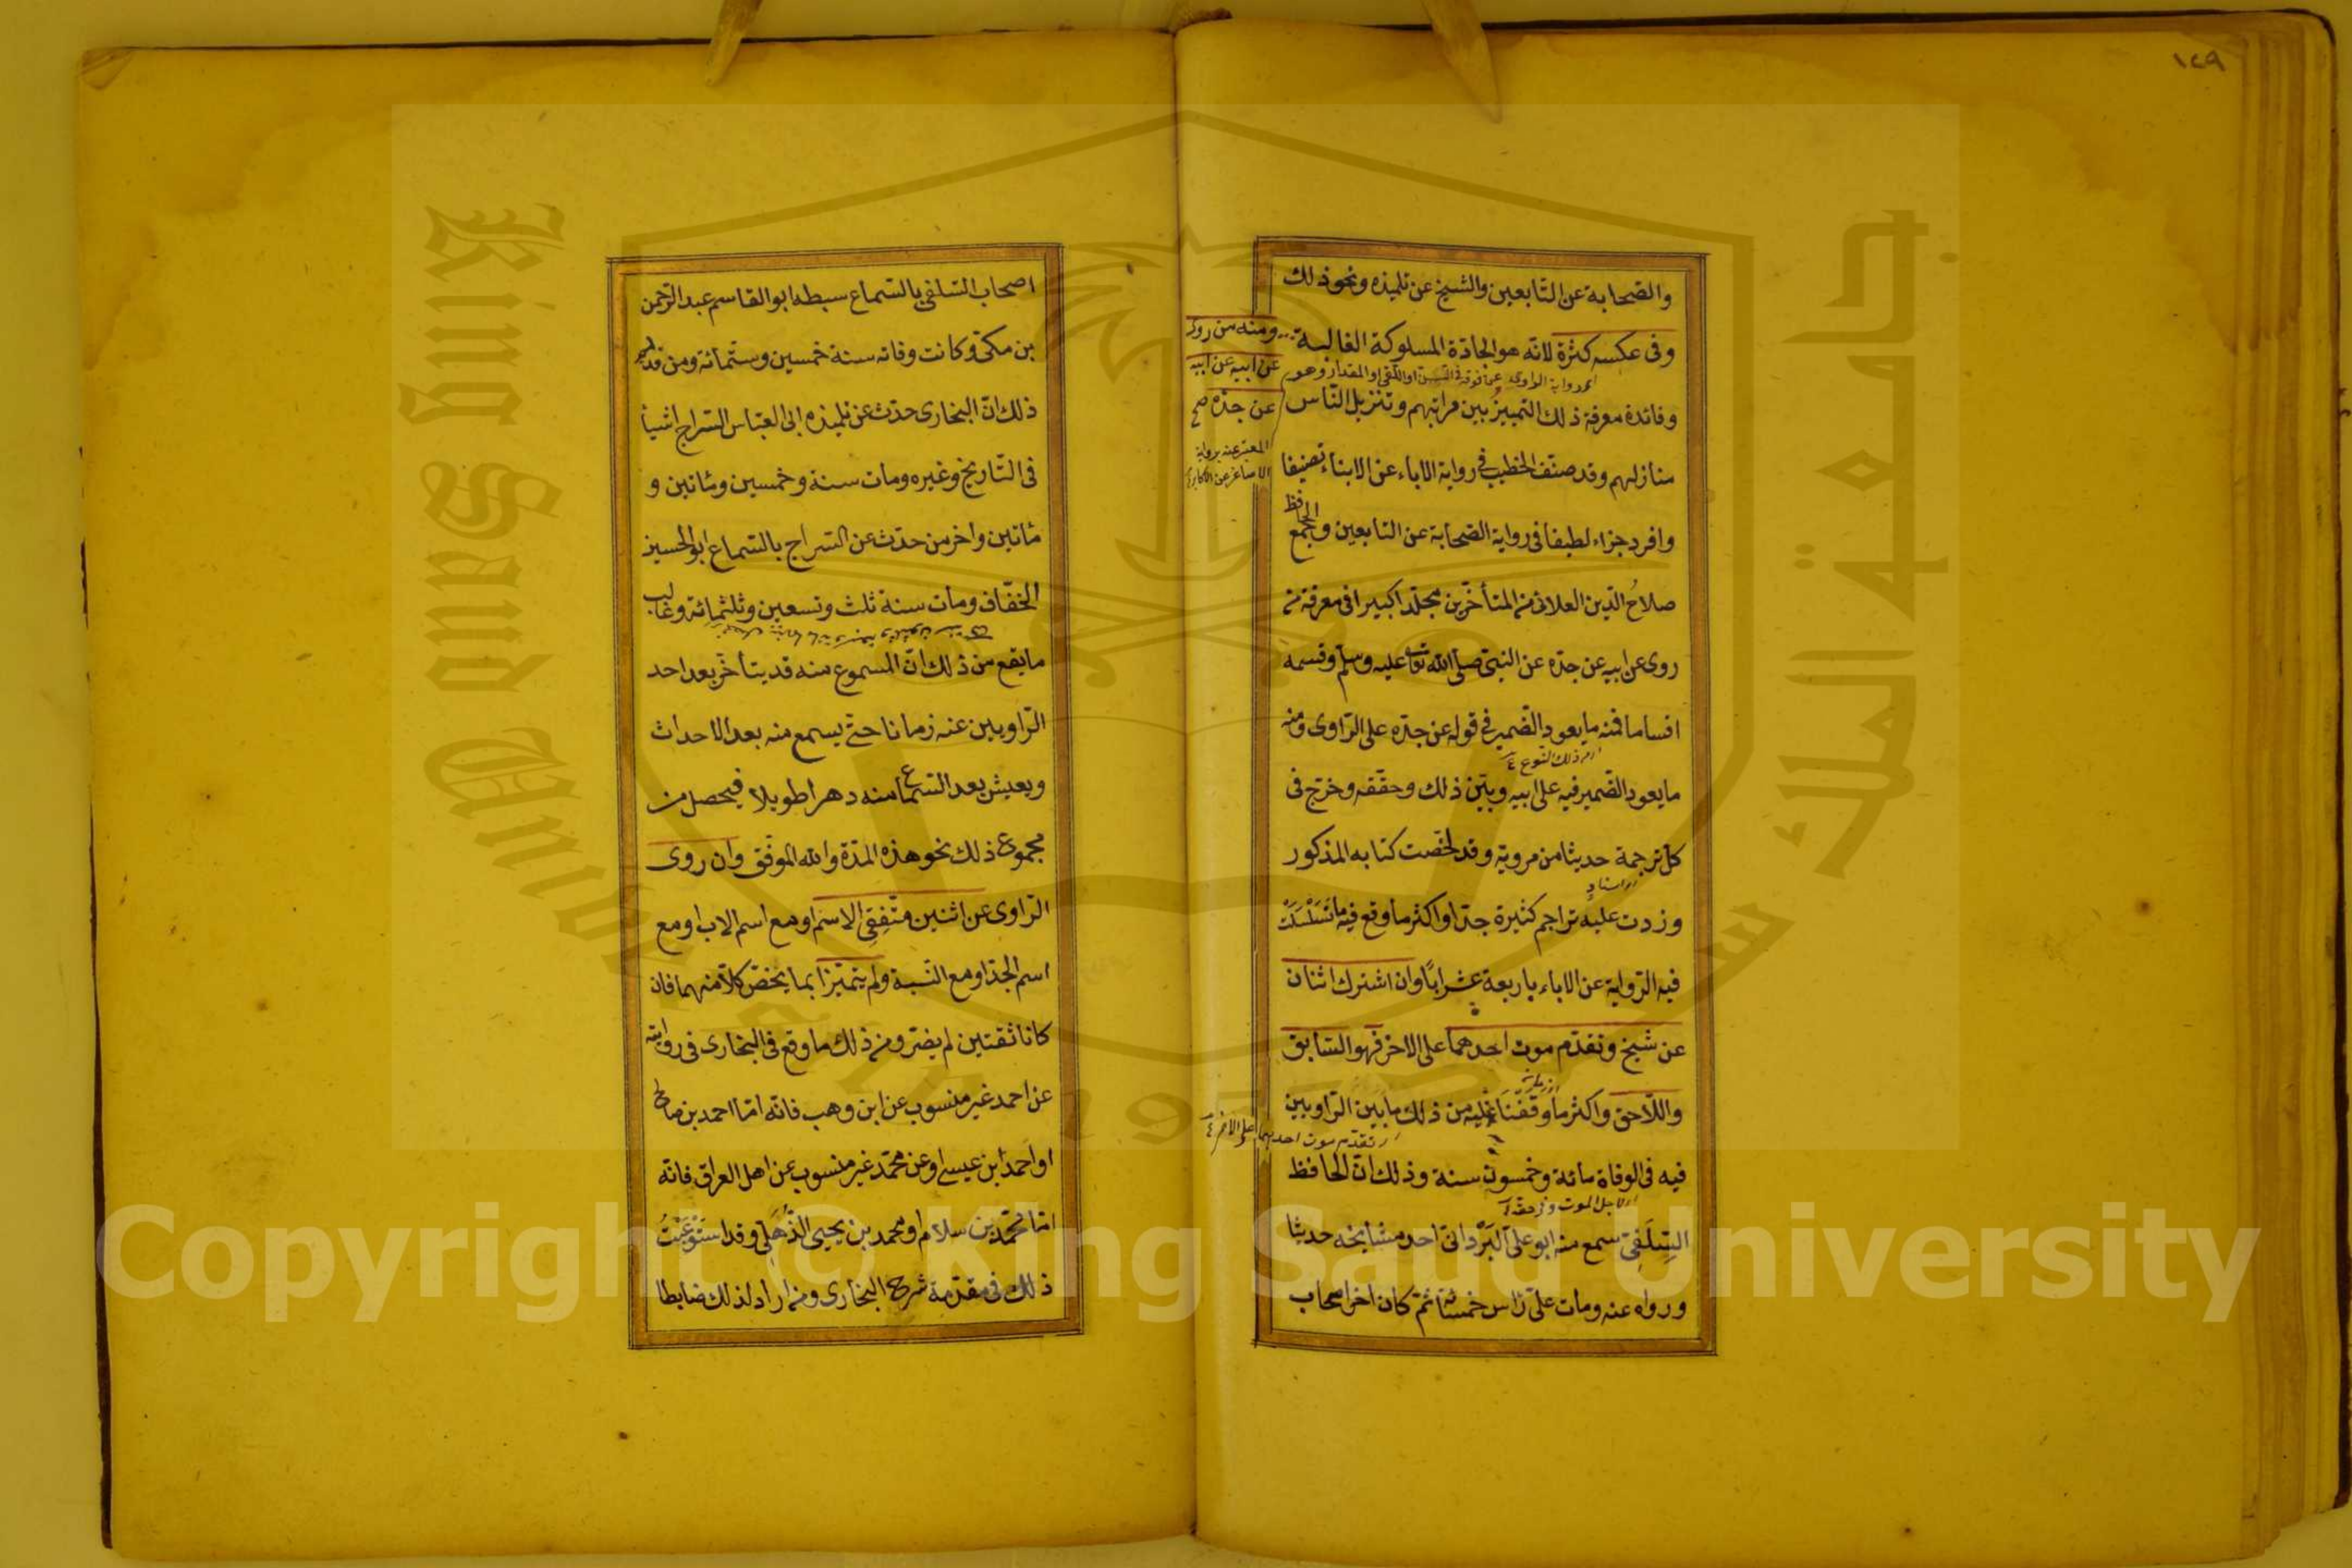 ١٤٩
والصحابة عن التابعين والشيخ عن تلميذه ونحو ذلك
وفى عكسه كثرة لانه هو الجادة المسلوكة الغالبة
ومنه من روى
عن ابيه عن ابيه
عن جده صح
وفائدة معرفة ذلك التمييز بين مراتبهم وتنزيل الناس
المعبر عنه برواية
الاصاغر عن الاكابر
منازلهم وقد صنف الخطيب فى رواية الاباء عن الابناء تصنيفا
وافرد جزاء لطيفا فى رواية الصحابة عن التابعين وجمع الحافظ
صلاح الدين العلائى من المتأخرين مجلدا كبيرا فى معرفة من
روى عن ابيه عن جده عن النبى صلى الله تعالى عليه وسلم وقسمه
اقساما فمنه ما يعود الضمير فى قوله عن جده على الراوى ومنه
اى من ذلك النوع
ما يعود الضمير فيه على ابيه وبين ذلك وحققه وخرج فى
كل ترجمة حديثا من مرويه وقد لخصت كتابه المذكور
وزدت عليه تراجم كثيرة جدا واكثر ما وقع فيه ما تسلسلت
فيه الرواية عن الاباء باربعة عشر ابا وان اشترك اثنان
عن شيخ وتقدم موت احدهما على الاخر فهو السابق
واللاحق واكثر ما وقفنا عليه من ذلك ما بين الراويين
اى تقدم موت احدهما على الاخر
فيه فى الوفاة مائة وخمسون سنة وذلك ان الحافظ
السلفى سمع منه ابو على البردانى احد مشايخه حديثا
ورواه عنه ومات على راس خمسمائة ثم كان اخر اصحاب
اصحاب السلفى بالسماع سبطه ابو القاسم عبد الرحمن
بن مكى وكانت وفاته سنة خمسين وستمائة ومن قديم
ذلك ان البخارى حدث عن تلميذه ابى العباس السراج اشيأ
فى التاريخ وغيره ومات سنة وخمسين ومئاتين و
مئاتين واخر من حدث عن السراج بالسماع ابو الحسين
الخفاف ومات سنة ثلث وتسعين وثلثمائة وغالب
ما يقع من ذلك ان المسموع منه قد يتأخر بعد احد
الراويين عنه زمانا حتى يسمع منه بعد الاحداث
ويعيش بعد السماع منه دهرا طويلا فيحصل من
مجموع ذلك نحو هذه المدة والله الموفق وان روى
الراوى عن اثنين متفقى الاسم او مع اسم الاب او مع
اسم الجد او مع النسبة ولم يتميزا بما يخص كلا منهما فان
كانا ثقتين لم يضر ومن ذلك ما وقع فى البخارى فى روايته
عن احمد غير منسوب عن ابن وهب فانه اما احمد بن صالح
او احمد ابن عيسى او عن محمد غير منسوب عن اهل العراق فانه
اما محمد بن سلام او محمد بن يحيى الذهلى وقد استوعبت
ذلك فى مقدمة شرح البخارى ومن اراد لذلك ضابطا
King Saud University
جامعة الملك سعود
1957
Copyright © King Saud University